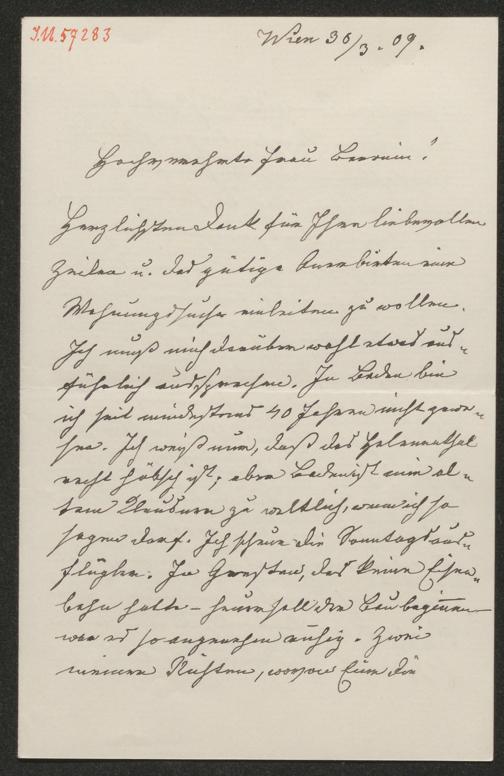 I.N. 59283
Wien 30/3. 09.
Hochverehrte Frau Baronin!
Herzlichsten Dank für Ihre liebevollen
Zeilen u. das gütige Anerbieten eine
Wohnungssuche einleiten zu wollen.
Ich muß mich darüber wohl etwas aus-
führlich aussprechen. In Baden bin
ich seit mindestens 40 Jahren nicht gewe-
sen. Ich weiß nun, daß das Helenenthal
recht hübsch ist; aber Baden ist mir al-
tem zu weltlich, wenn ich so
sagen darf. Ich scheue die Sonntagsaus-
flügler. In Gresten, das keine Eisen-
bahn hatte – heuer soll der Bau beginnen –
war es so angenehm ruhig. Zwei
meiner Nichten, wovon Eine die